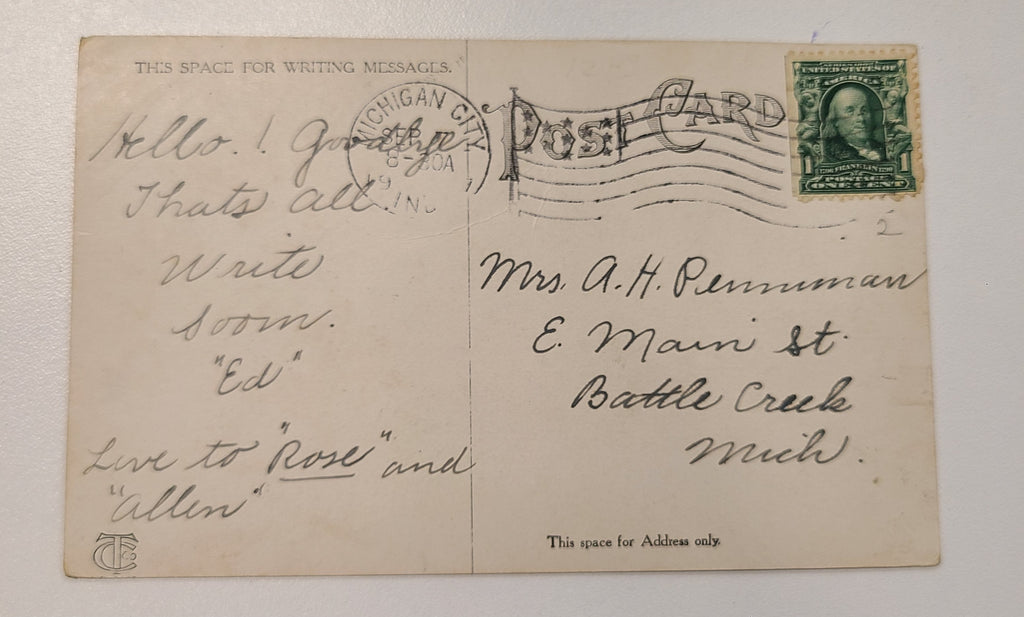 THIS SPACE FOR WRITING MESSAGES.
Hello. ! Goodbye
Thats all
Write
Soon.
"Ed"
Love to "Rose" and
"Allen"
MICHIGAN CITY
SEP
8-30A
19
IND
POST CARD
SERIES 1902
UNITED STATES OF
AMERICA
1706 FRANKLIN 1790
1 POSTAGE 1
ONE CENT
2
Mrs. A. H. Penniman
E. Main St.
Battle Creek
Mich.
This space for Address only.